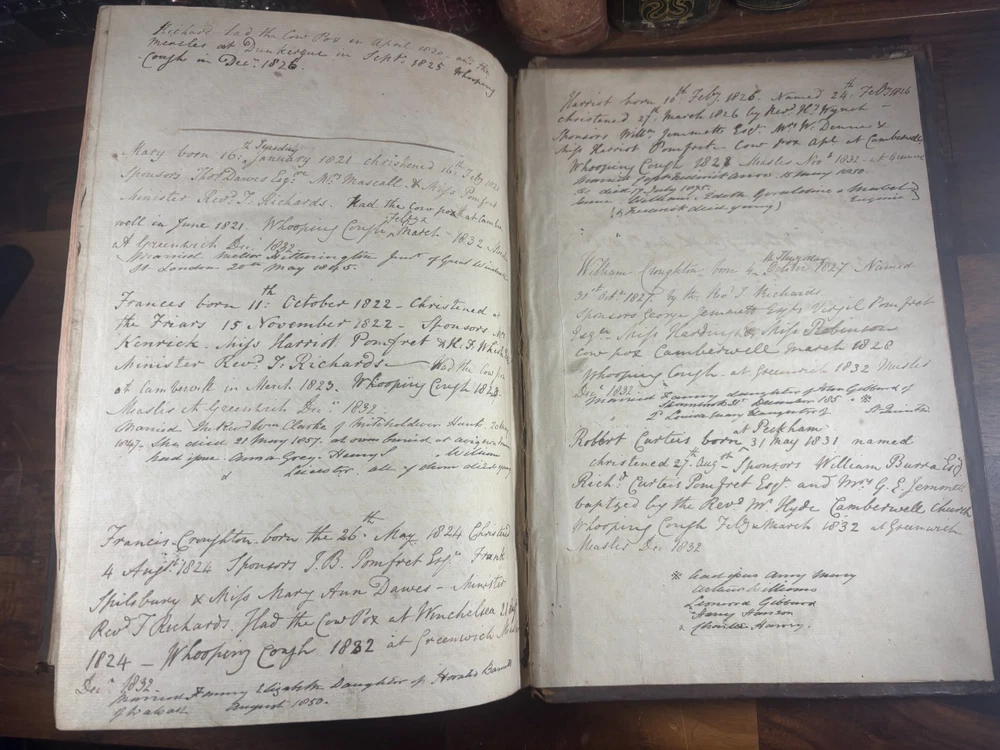 Richard had the Cow Pox in April 1820, and the
Measles at Dunkerque in Sept. 1825 Whooping
Cough in Decr. 1826.
Tuesday
Mary born 16th January 1821 christened 16th Feby 1821
Sponsors Thos Dawes Esqre Mrs Mascall & Miss Pomfret
Minister Revd. T. Richards. Had the Cow pox at Camber
well in June 1821. Whooping Cough Feby & March - 1832
At Greenwich Decr. 1832
Married Hetherington Junr. of Great
St London 20th May 1845.
Frances born 11th October 1822 - Christened at
the Friars 15 November 1822 - Sponsors Mrs
Kenrick. Miss Harriot Pomfret &
Minister Revd. T. Richards - Had the Cow pox
at Camberwell in March 1823. Whooping Cough
Measles At Greenwich Decr. 1832
Married The Revd Wm Clarke of
1847. She died 21 May 1857. at buried at
had issue. Anna Grey. Henry William
& Leicester all of whom died young
Francis Croughton born the 26th May 1824 Christend
4 Augst 1824 Sponsors J.B. Pomfret Esqr. Frank
Spilsbury & Miss Mary Ann Dawes - Minister
Revd T Richards. Had the Cow Pox at Winchelsea 21
1824 - Whooping Cough 1832 at Greenwich
Decr 1832
Married Elizabeth Daughter of Horatio
of August 1850.
Harriot born 10th Feby 1826. Named 24th Feby 1826
christened 27th March 1826 by Revd. Hy Wynch -
Sponsors Willm Jemmett Esqr. Mrs W. Denne &
Miss Harriot Pomfret - Cow pox Apl at Camberwell
Whooping Cough 1828 Measles Novr 1832 - at
Married 15 May 1850.
died 17 July 1875.
issue. William. Edith Geraldine & Mabel
(& Frederick died young) Eugenie
Thursday
William Croughton born 4th October 1827 - Named
31st Octr 1827. by the Revd T. Richards.
Sponsors George Jemmett Esqr. Virgil Pomfret
Esqre Miss Harding & Miss Robinson
Cow pox Camberwell March 1828
Whooping Cough - at Greenwich 1832 Measles
Decr. 1832.
Married Fanny daughter of John Gibbons of
31st December 185 - ※
2d Louisa Mary daughter of St Quintin
at Peckham
Robert Curteis born 31 May 1831 named
christened 27th Augst - Sponsors William Burra Esqr
Richd. Curteis Pomfret Esqr. and Mrs G. E. Jemmett
baptyzed by the Revd Mr Hyde Camberwell Church
Whooping Cough Feby & March 1832 at Greenwich
Measles Dec 1832
※ had issue Mary
Arthur Williams
Leonard Gibbons
Harry
Charles Harry.